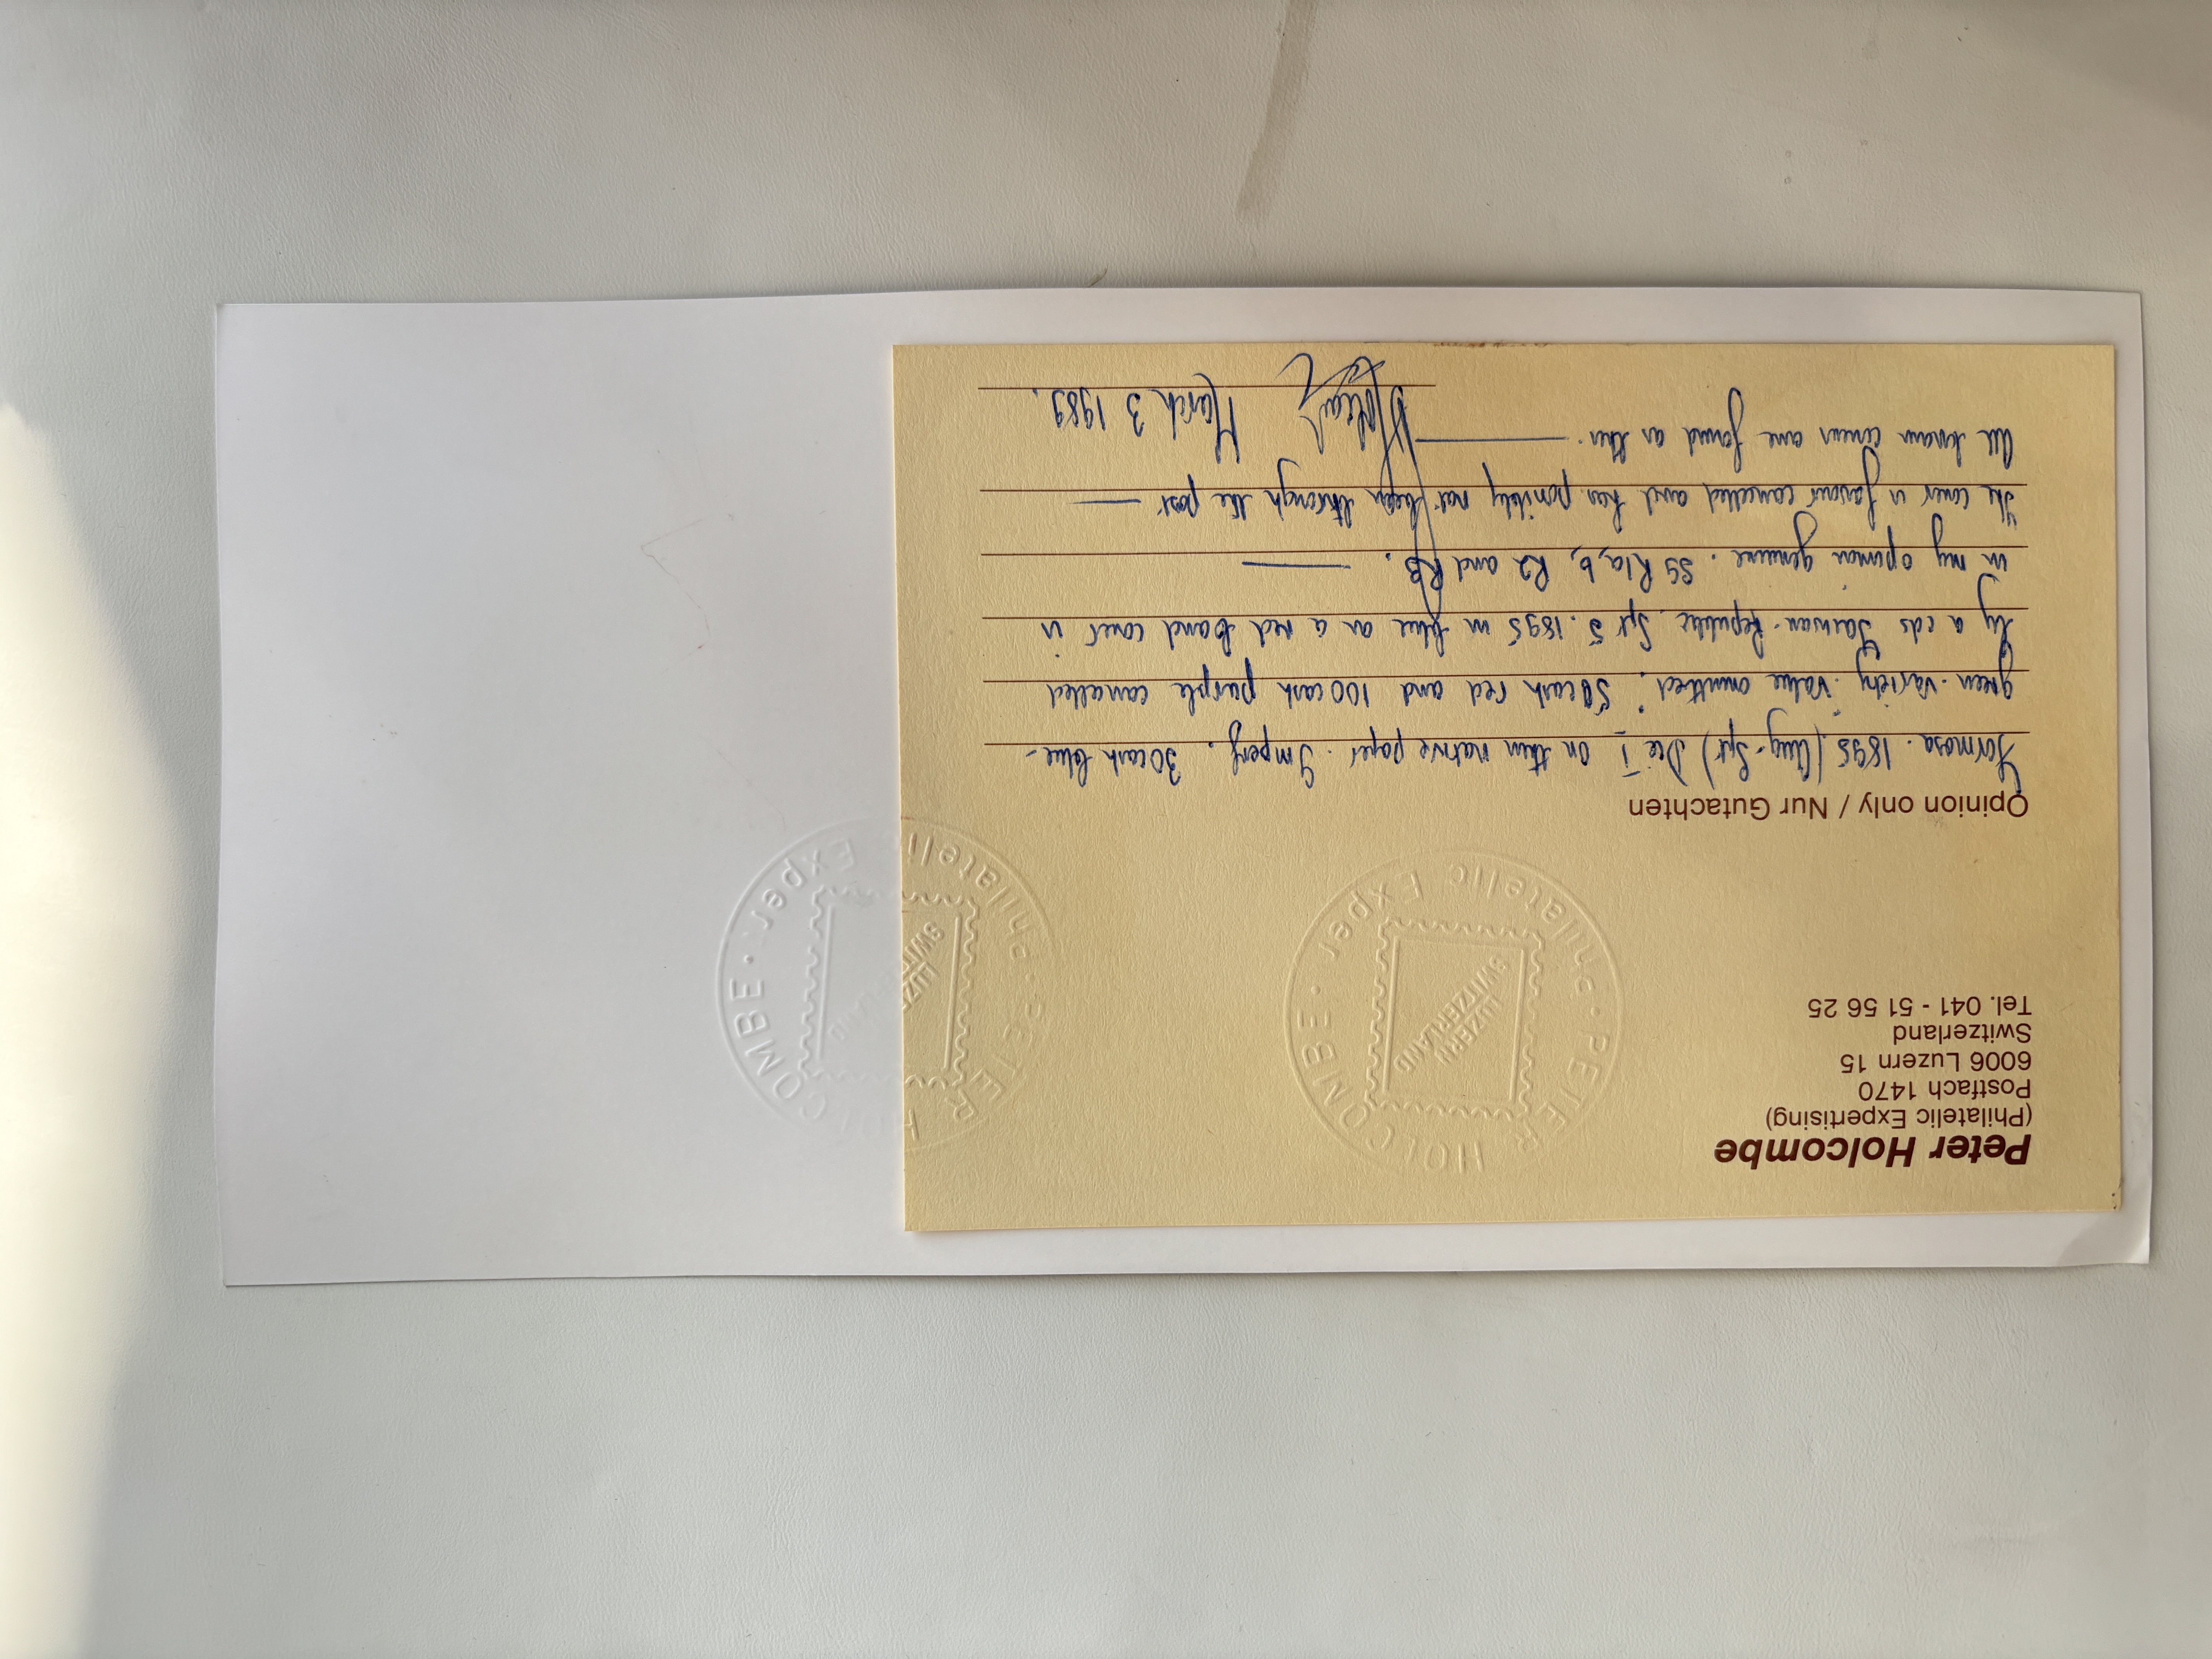 Peter Holcombe
(Philatelic Expertising)
Postfach 1470
6006 Luzern 15
Switzerland
Tel. 041 - 51 56 25
PETER HOLCOMBE · Philatelic Expert ·
LUZERN
SWITZERLAND
Opinion only / Nur Gutachten
Formosa. 1895. (Aug-Spt) Die I on thin native paper. Imperf. 30 cash blue-
green. variety "value omitted". 50 cash red and 100 cash purple cancelled
by a cds Taiwan-Republic Spt 5. 1895 in blue on a red band cover is
in my opinion genuine. SG R1a, b, R2 and R3.
The cover is favour cancelled and has possibly not been through the post
All known covers are found as this.
March 3 1989.